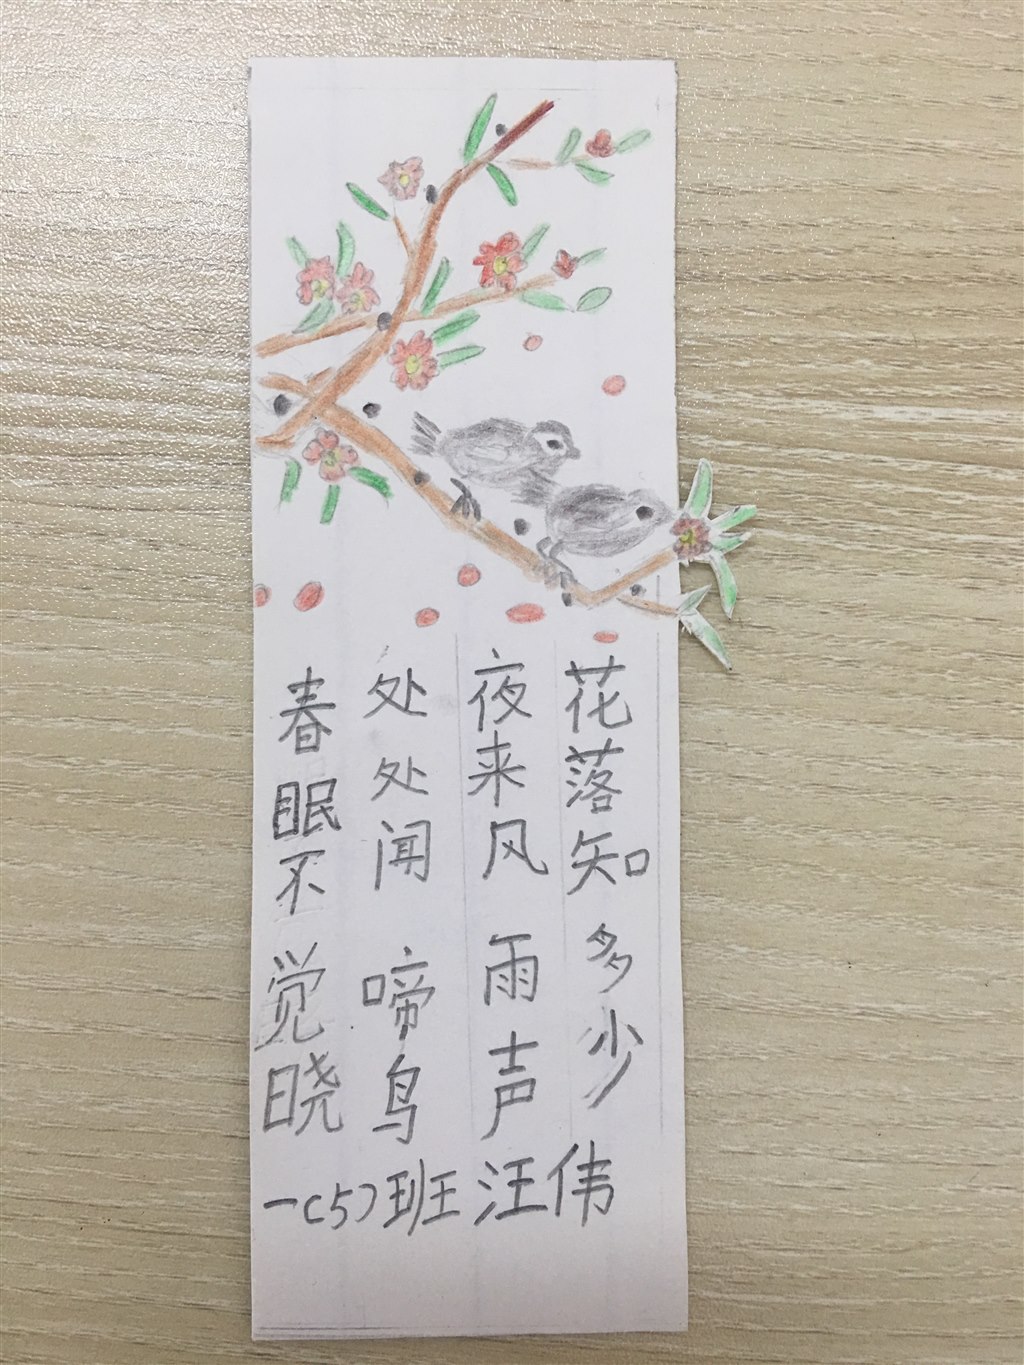 春眠不觉晓
处处闻啼鸟
夜来风雨声
花落知多少
一(5)班汪伟